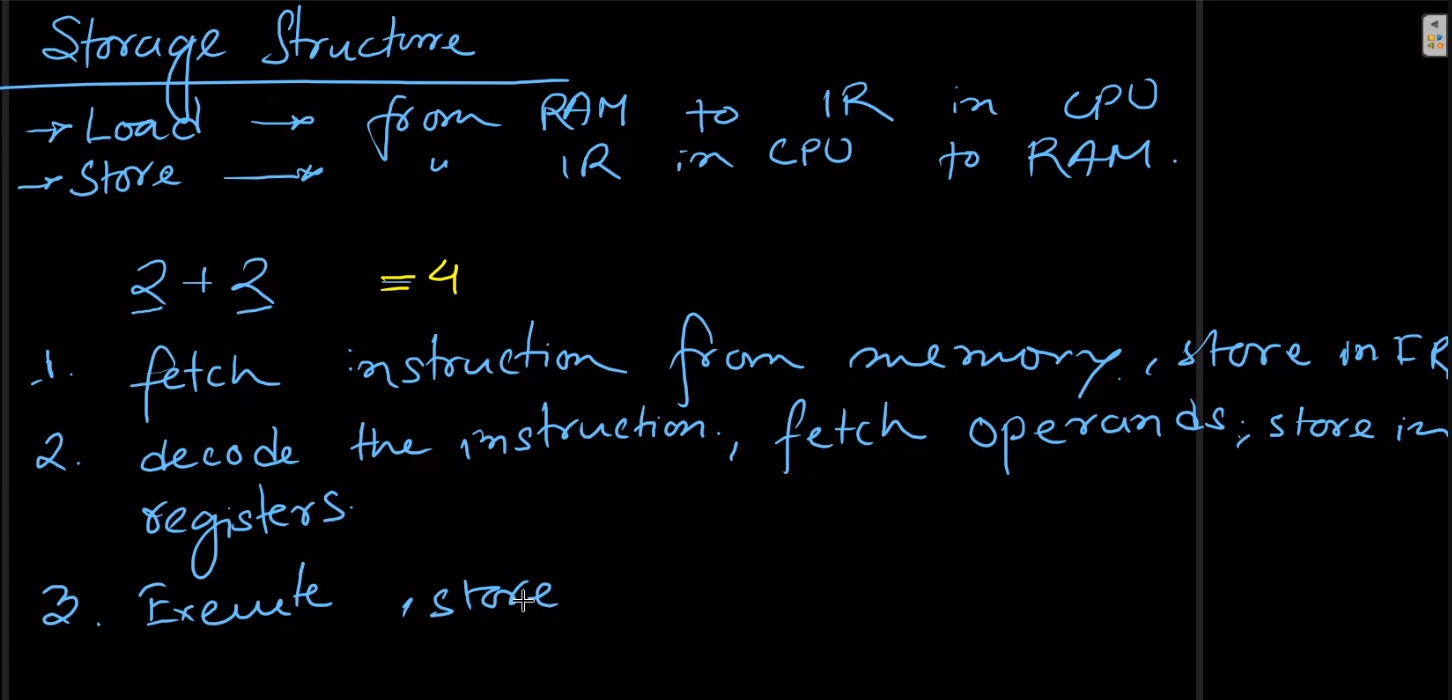 Storage Structure
→ Load → from RAM to IR in CPU
→ Store → " IR in CPU to RAM.
2 + 2 = 4
1. fetch instruction from memory, store in IR
2. decode the instruction, fetch operands, store in
registers.
3. Execute, store